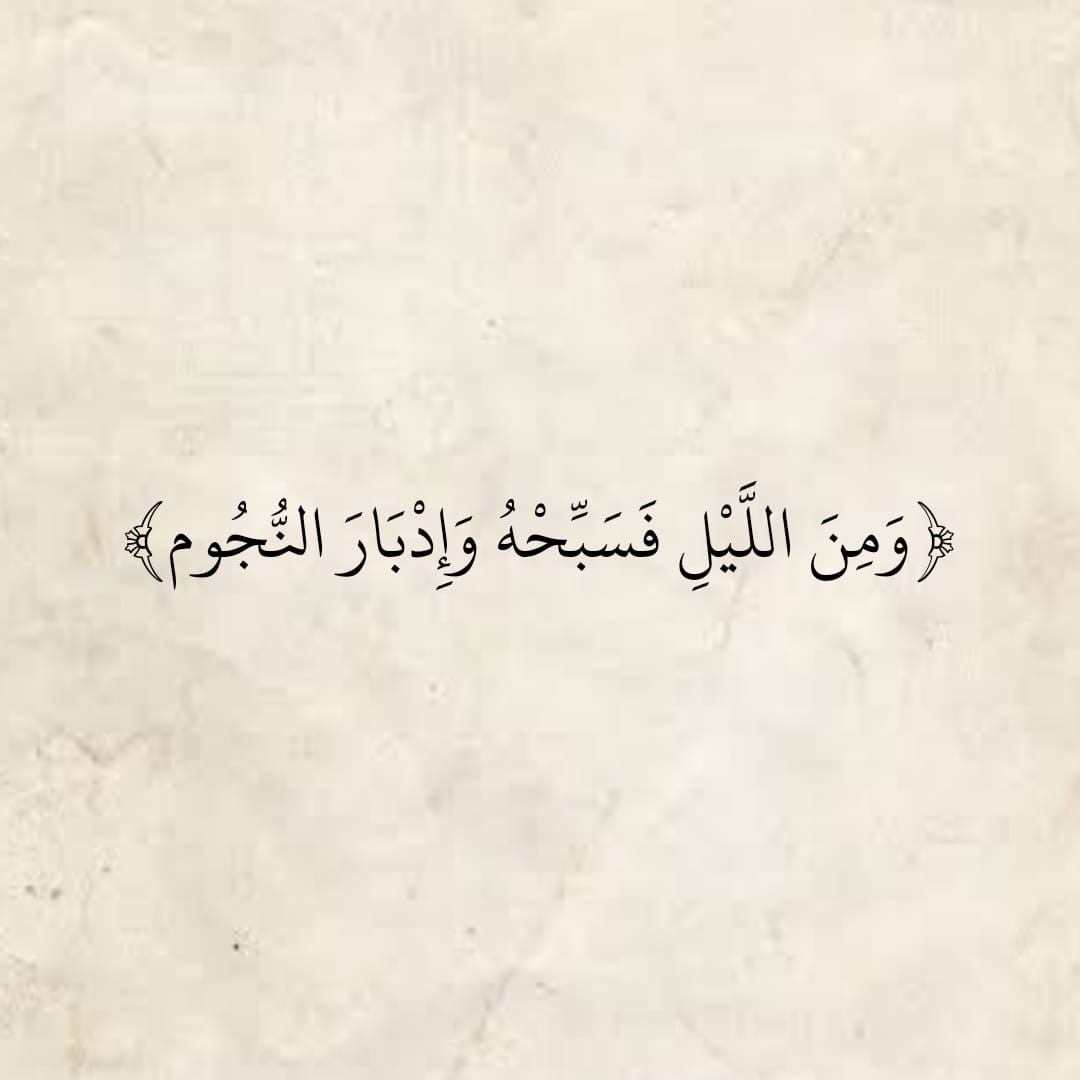 ﴿وَمِنَ اللَّيْلِ فَسَبِّحْهُ وَإِدْبَارَ النُّجُوم﴾